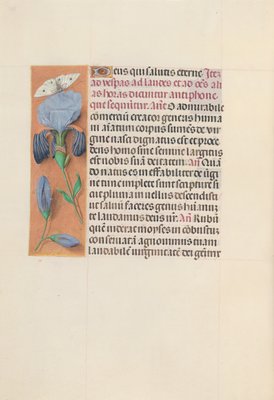 Deus qui salutis eterne Ite3
ad vesp̄as ad laudes et ad oēs ali
as horas dicuntur antiphone
que sequūtur. Añe O admirabile
comerciū creator generis huma
ni aīatum corpus sumēs de virgi
ne nasci dignatus est et proce
dens homo sine semine largitus
est nobis suā deitatem. Añ Quā
do natus es ineffabiliter de virgi
ne tunc implete sunt scripture si
cut pluuia in vellus descendisti
ut saluū faceres genus hūanū
te laudamus deus nr̄. Añ Rubū
quē viderat moyses incōbustū
conseruatā agnouimus tuam
laudabilē virginitatē dei genitrix